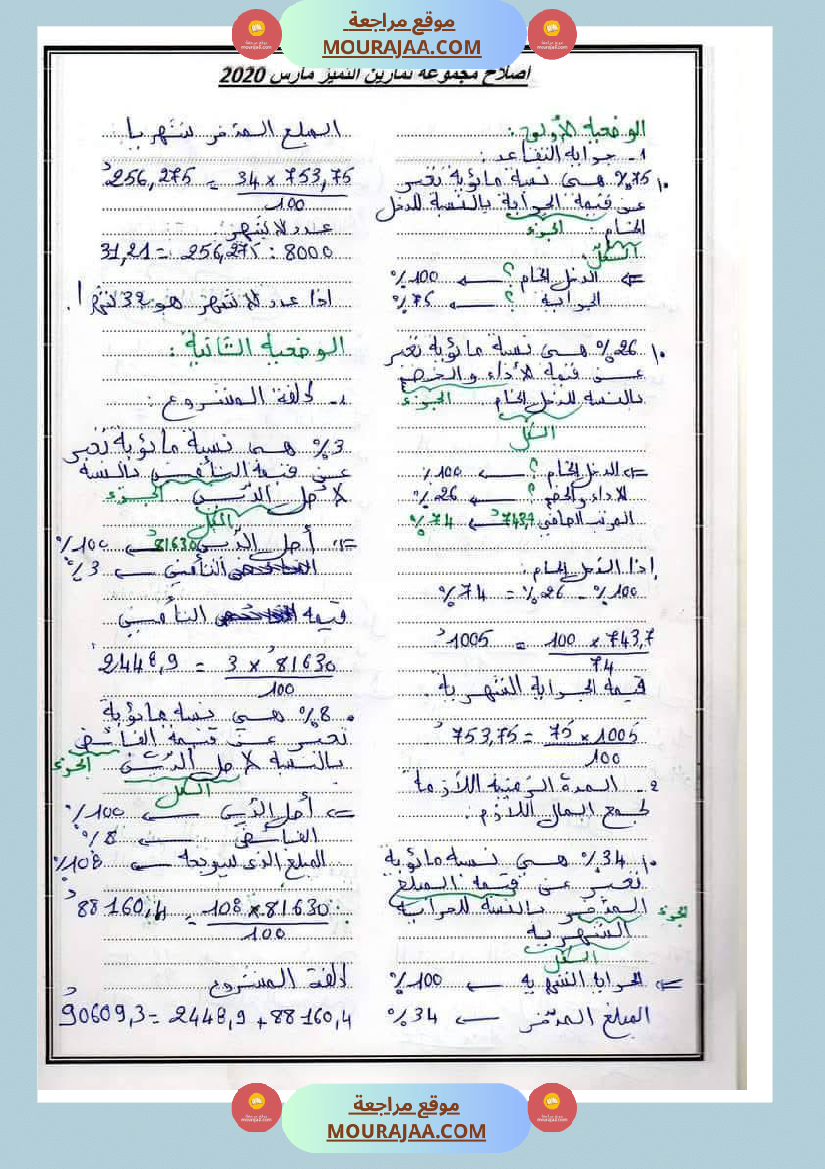 موقع مراجعة
MOURAJAA.COM
اصلاح مجموعة تمارين التميز مارس 2020
الوضعية الأولى :
1 - جراية التقاعد :
75% هي نسبة مائوية تعبر
عن قيمة الجراية بالنسبة للدخل
الخام : الجزء
الكل
⇐ الدخل الخام ؟ ← 100%
الجراية ؟ ← 75%
26% هي نسبة مائوية تعبر
عن قيمة الأداء والخصم
بالنسبة للدخل الخام الجزء
الكل
⇐ الدخل الخام ؟ ← 100%
الأداء والخصم ؟ ← 26%
المرتب الصافي 743,7د ← 74%
إذا الدخل الخام :
100% - 26% = 74%
743,7 x 100 / 74 = 1005د
قيمة الجراية الشهرية .
1005 x 75 / 100 = 753,75د
2 - المدة الزمنية اللازمة
لجمع المال اللازم :
34% هي نسبة مائوية
تعبر عن قيمة المبلغ
المدخر بالنسبة للجراية الجزء
الشهرية
الكل
⇐ الجراية الشهرية ← 100%
المبلغ المدخر ← 34%
المبلغ المدخر شهريا
753,75 x 34 / 100 = 256,275د
عدد الأشهر :
8000 : 256,275 = 31,21
اذا عدد الأشهر هو 32 شهرا .
الوضعية الثانية :
1 - كلفة المشروع :
3% هي نسبة مائوية تعبر
عن قيمة التأمين بالنسبة
لأصل الدين الجزء
الكل
⇐ أصل الدين 81630د ← 100%
التأمين ← 3%
قيمة التأمين
81630د x 3 / 100 = 2448,9د
8% هي نسبة مائوية
تعبر عن قيمة الفائض
بالنسبة لأصل الدين الجزء
الكل
⇐ أصل الدين ← 100%
الفائض ← 8%
المبلغ الذي سيرجعه ← 108%
81630 x 108 / 100 = 88160,4د
كلفة المشروع
88160,4 + 2448,9 = 90609,3د
موقع مراجعة
MOURAJAA.COM